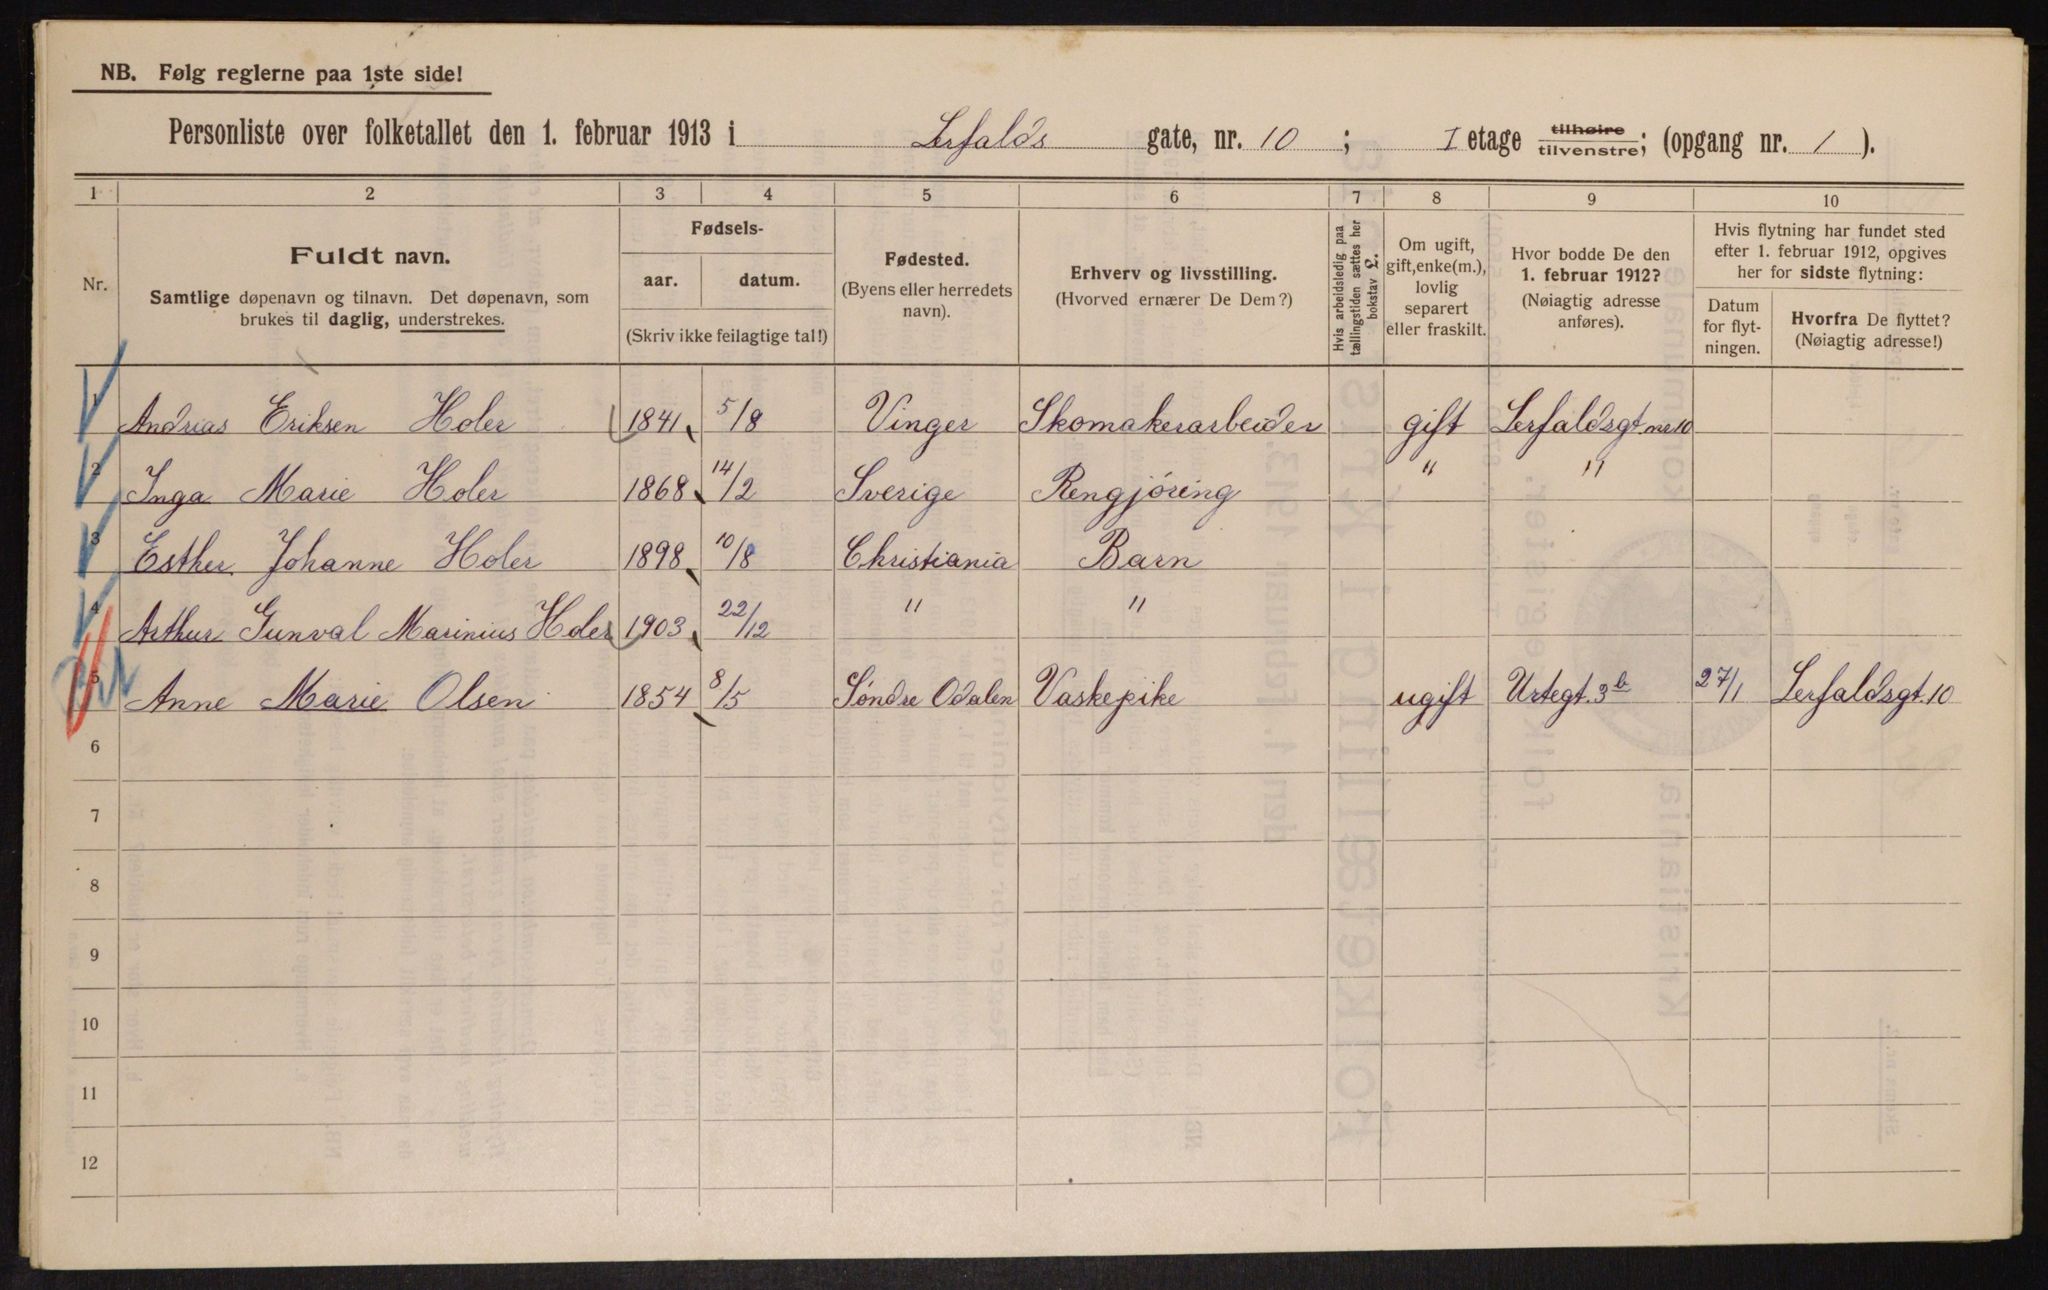 NB. Følg reglerne paa 1ste side!
Personliste over folketallet den 1. februar 1913 i Lerfalds gate, nr. 10 ; I etage tilhøire tilvenstre; (opgang nr. 1 ).
1 2 3 4 5 6 7 8 9 10
Nr.
Fuldt navn.
Samtlige døpenavn og tilnavn. Det døpenavn, som
brukes til daglig, understrekes.
Fødsels-
aar. datum.
(Skriv ikke feilagtige tal!)
Fødested.
(Byens eller herredets
navn).
Erhverv og livsstilling.
(Hvorved ernærer De Dem?)
Hvis arbeidsledig paa
tællingstiden sættes her
bokstav L.
Om ugift,
gift, enke(m.),
lovlig
separert
eller fraskilt.
Hvor bodde De den
1. februar 1912?
(Nøiagtig adresse
anføres).
Hvis flytning har fundet sted
efter 1. februar 1912, opgives
her for sidste flytning:
Datum
for flyt-
ningen.
Hvorfra De flyttet?
(Nøiagtig adresse!)
1 Andrias Eriksen Holer 1841 5/8 Vinger Skomakerarbeider gift Lerfaldsgt. nr 10
2 Inga Marie Holer 1868 14/2 Sverige Rengjøring " "
3 Esther Johanne Holer 1898 10/8 Christiania Barn
4 Arthur Gunval Marinius Holer 1903 22/12 " "
5 Anne Marie Olsen 1854 8/5 Søndre Odalen Vaskepike ugift Urtegt. 3b 27/1 Lerfaldsgt. 10
6
7
8
9
10
11
12